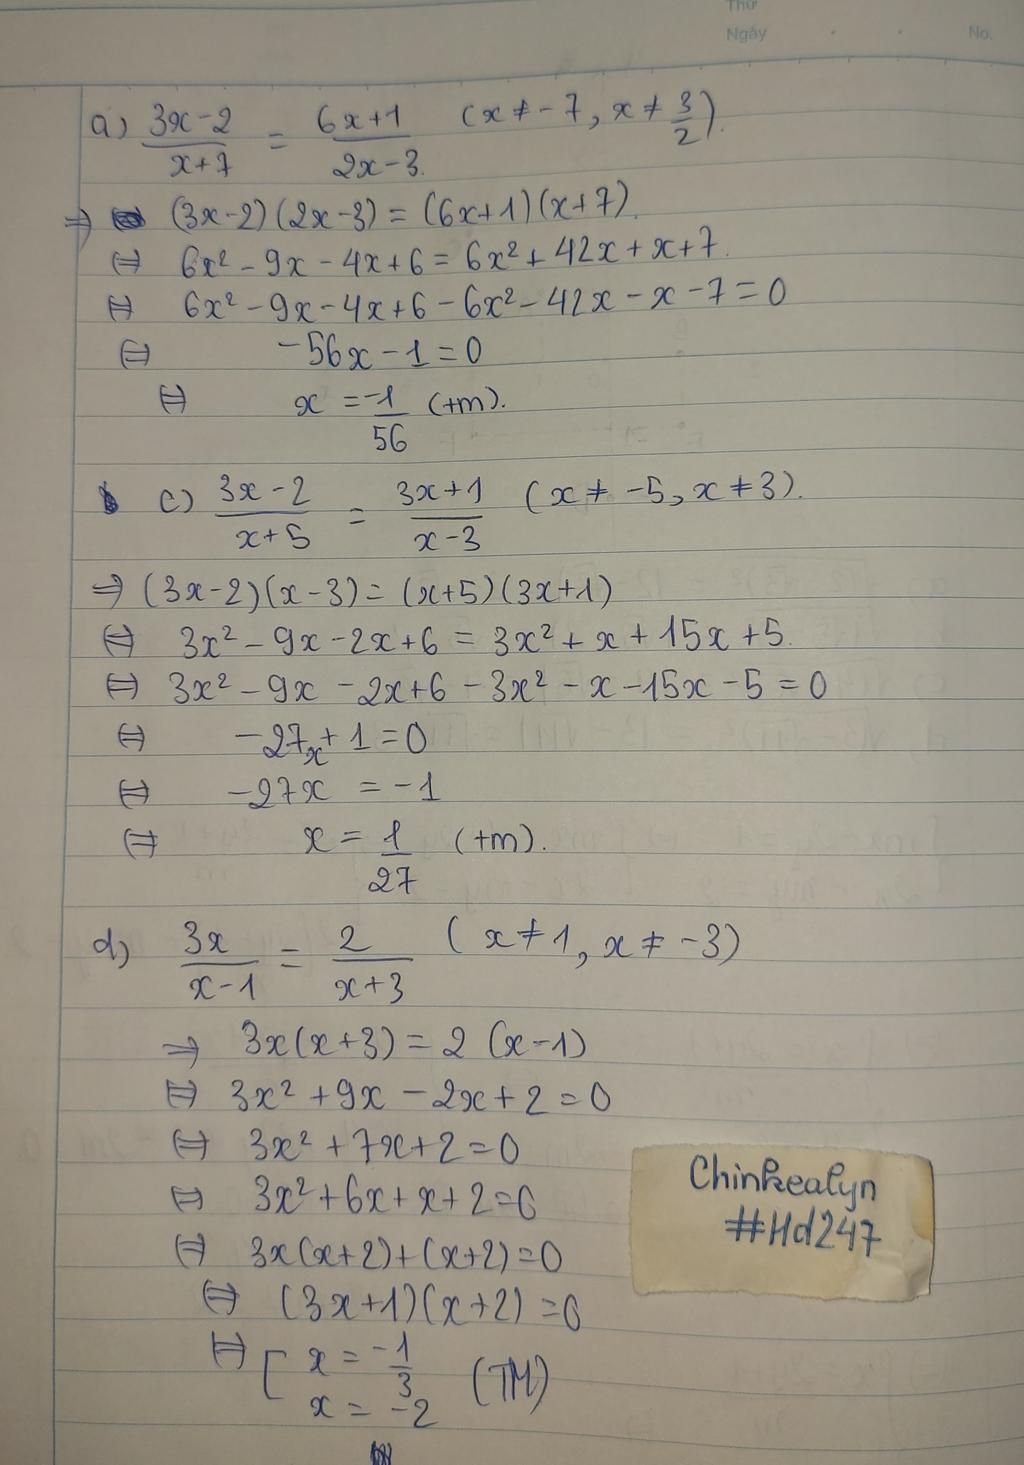 Thứ
Ngày . . No.
a) \frac{3x-2}{x+7} = \frac{6x+1}{2x-3} (x ≠ -7, x ≠ \frac{3}{2}).
⇒ (3x-2)(2x-3) = (6x+1)(x+7).
⇔ 6x² - 9x - 4x + 6 = 6x² + 42x + x + 7.
⇔ 6x² - 9x - 4x + 6 - 6x² - 42x - x - 7 = 0
⇔ -56x - 1 = 0
⇔ x = \frac{-1}{56} (tm).
c) \frac{3x-2}{x+5} = \frac{3x+1}{x-3} (x ≠ -5, x ≠ 3).
⇒ (3x-2)(x-3) = (x+5)(3x+1)
⇔ 3x² - 9x - 2x + 6 = 3x² + x + 15x + 5.
⇔ 3x² - 9x - 2x + 6 - 3x² - x - 15x - 5 = 0
⇔ -27x + 1 = 0
⇔ -27x = -1
⇔ x = \frac{1}{27} (tm).
d) \frac{3x}{x-1} = \frac{2}{x+3} (x ≠ 1, x ≠ -3)
⇒ 3x(x+3) = 2 (x-1)
⇔ 3x² + 9x - 2x + 2 = 0
⇔ 3x² + 7x + 2 = 0
⇔ 3x² + 6x + x + 2 = 0
⇔ 3x(x+2) + (x+2) = 0
⇔ (3x+1)(x+2) = 0
⇔ [ x = \frac{-1}{3}
x = -2 (TM)
Chinkealyn
#Hd247